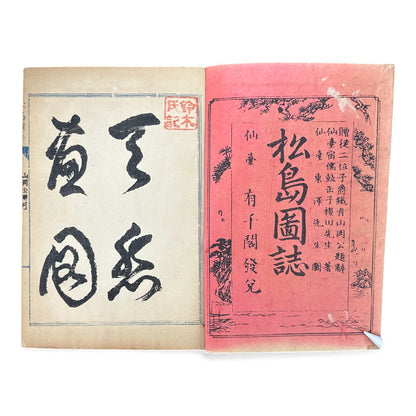 贈從二位子爵鐵舟山岡公題辭
仙臺宿儒鼓缶子櫻田先生著
仙臺東澤先生圖
松島圖誌
仙臺 有千閣發兌
鈴木
氏記
天然
畫圖